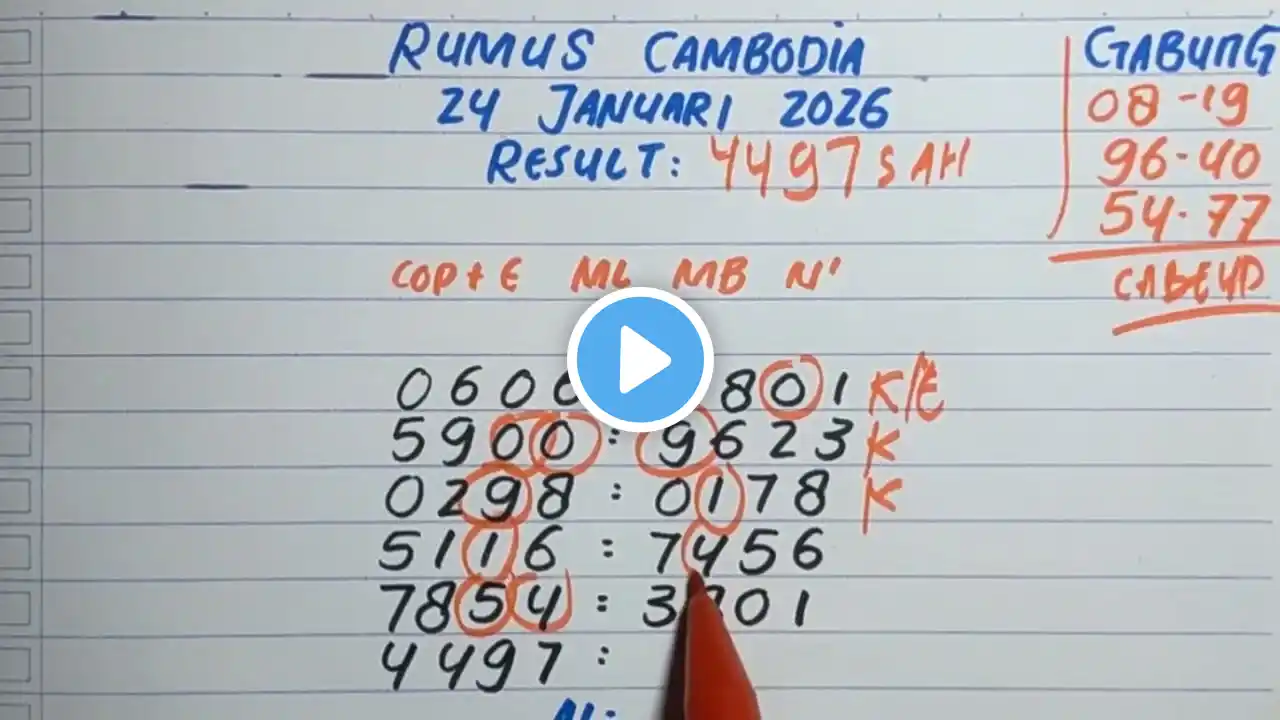 RUMUS CAMBODIA
24 JANUARI 2026
RESULT: 4497 SAH
GABUNG
08-19
96-40
54-77
COP+E ML MB N'
060 801 K/E
5900 : 9623 K
0298 : 0178 K
5116 : 7456
7854 : 3 01
4497 :